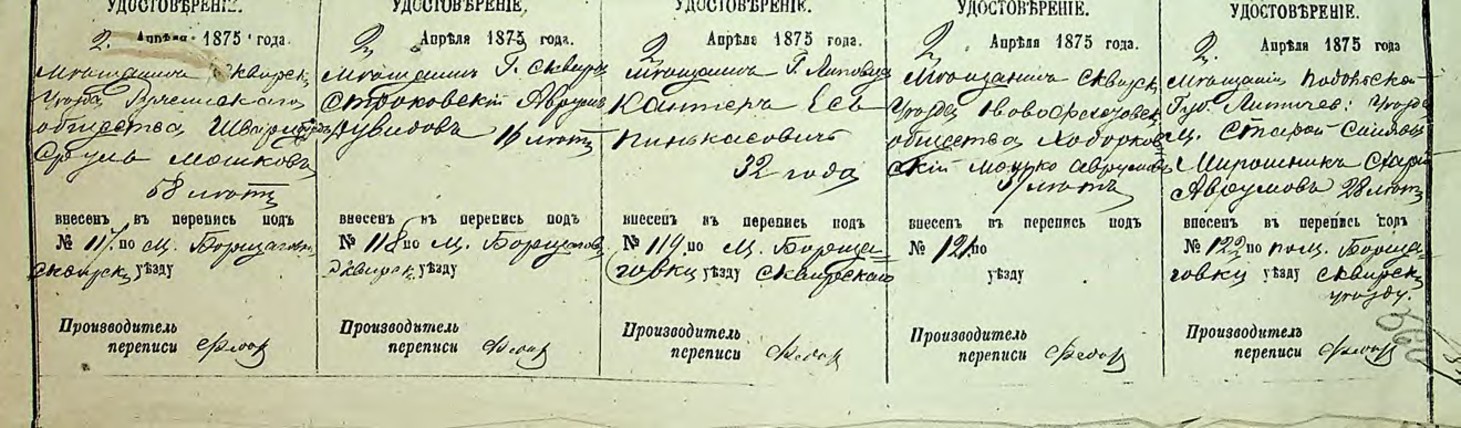 УДОСТОВѢРЕНІЕ.
2. Апрѣля 1875 года.
Мѣщанинъ Сквирск.
уѣзда
общества
Сруль Мошковъ
58 лѣтъ
внесенъ въ перепись подъ
№ 117. по м. Борщаговк
сквирск уѣзду
Производитель
переписи
УДОСТОВѢРЕНІЕ.
2 Апрѣля 1875 года.
Мѣщанинъ Г. Сквиры
Строковскій Аврумъ
Дувидовъ 16 лѣтъ
внесенъ въ перепись подъ
№ 118 по м. Борщагов
Сквирск. уѣзду
Производитель
переписи
УДОСТОВѢРЕНІЕ.
2 Апрѣля 1875 года.
Мѣщанинъ Г. Липовца
Кантеръ Есь
Пинькасовичъ
32 года
внесенъ въ перепись подъ
№ 119. по М. Борща-
говки уѣзду Сквирскаго
Производитель
переписи
УДОСТОВѢРЕНІЕ.
2 Апрѣля 1875 года.
Мѣщанинъ Сквирск
уѣзда
общества Ходорков
скій Мошко Аврумовъ
лѣтъ
внесенъ въ перепись подъ
№ 121. по
уѣзду
Производитель
переписи
УДОСТОВѢРЕНІЕ.
2. Апрѣля 1875 года
Мѣщанин Подольской
Губ. Литичев: уѣзда
м. Старой Синявы
Мирошникъ
Аврумовъ 28 лѣтъ
внесенъ въ перепись подъ
№ 122 по м. Борща-
говки уѣзду сквирск
уѣзду.
Производитель
переписи